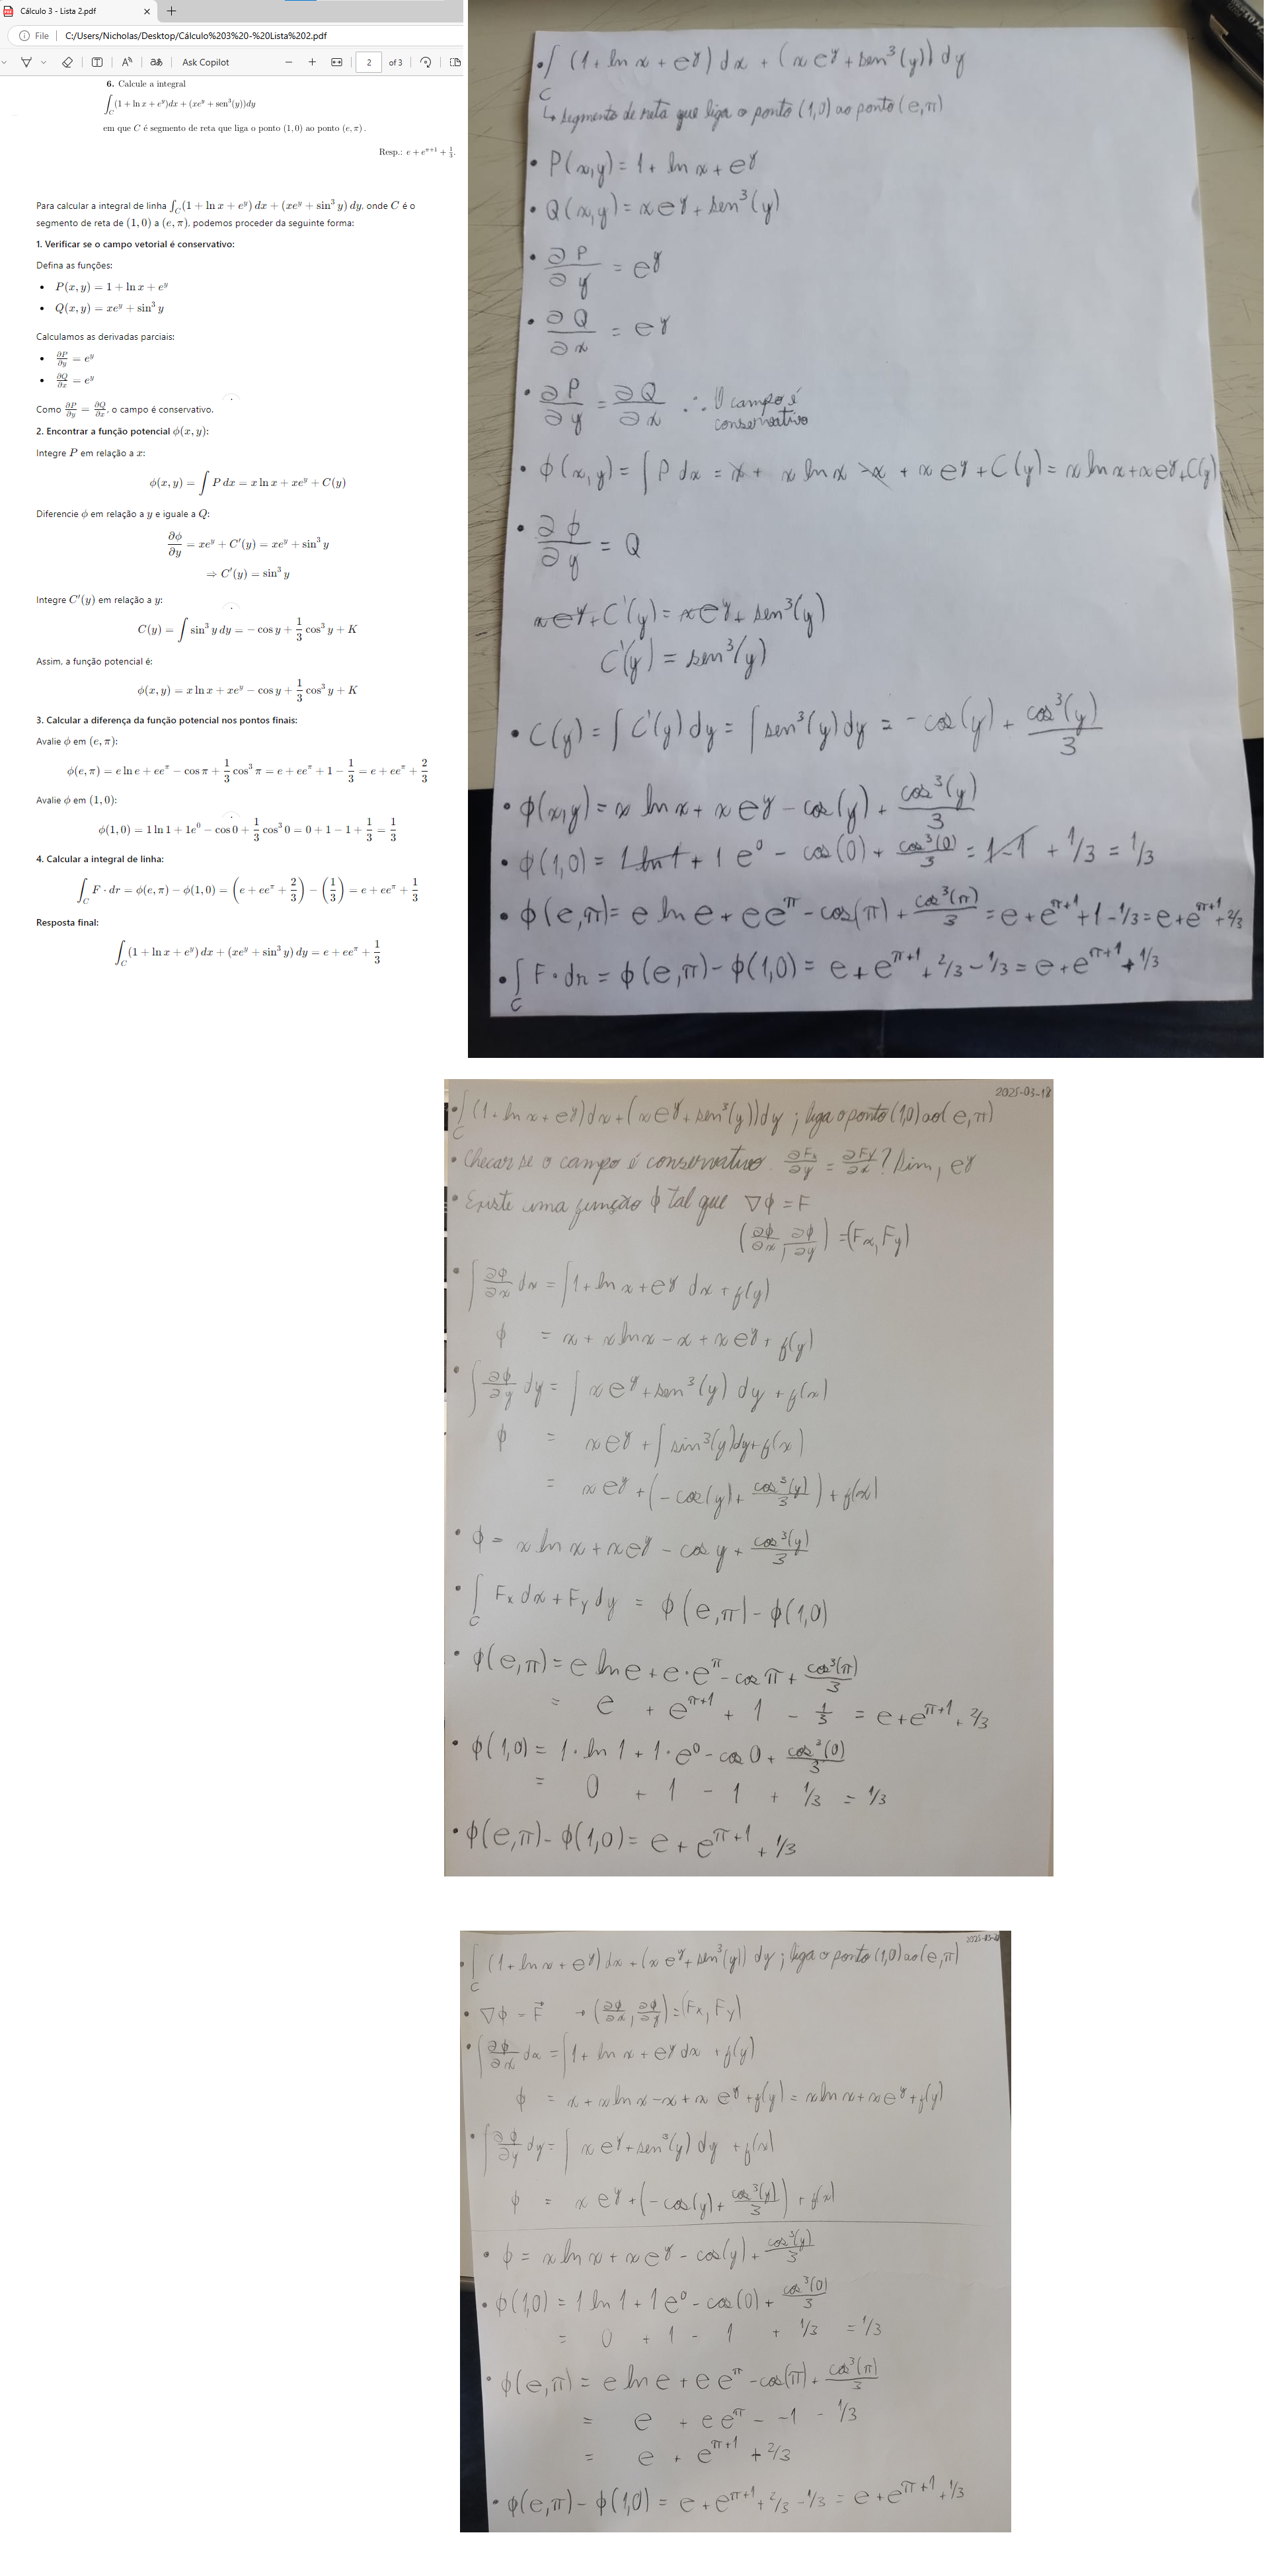 Cálculo 3 - Lista 2.pdf
File C:/Users/Nicholas/Desktop/Cálculo%203%20-%20Lista%202.pdf
Ask Copilot 2 of 3
6. Calcule a integral
∫_C (1 + ln x + e^y)dx + (xe^y + sen³(y))dy
em que C é segmento de reta que liga o ponto (1, 0) ao ponto (e, π).
Resp.: e + e^{π+1} + 1/3.
Para calcular a integral de linha ∫_C (1 + ln x + e^y) dx + (xe^y + sin³ y) dy, onde C é o
segmento de reta de (1, 0) a (e, π), podemos proceder da seguinte forma:
1. Verificar se o campo vetorial é conservativo:
Defina as funções:
• P(x, y) = 1 + ln x + e^y
• Q(x, y) = xe^y + sin³ y
Calculamos as derivadas parciais:
• ∂P/∂y = e^y
• ∂Q/∂x = e^y
Como ∂P/∂y = ∂Q/∂x, o campo é conservativo.
2. Encontrar a função potencial ϕ(x, y):
Integre P em relação a x:
ϕ(x, y) = ∫ P dx = x ln x + xe^y + C(y)
Diferencie ϕ em relação a y e iguale a Q:
∂ϕ/∂y = xe^y + C′(y) = xe^y + sin³ y
⇒ C′(y) = sin³ y
Integre C′(y) em relação a y:
C(y) = ∫ sin³ y dy = − cos y + 1/3 cos³ y + K
Assim, a função potencial é:
ϕ(x, y) = x ln x + xe^y − cos y + 1/3 cos³ y + K
3. Calcular a diferença da função potencial nos pontos finais:
Avalie ϕ em (e, π):
ϕ(e, π) = e ln e + ee^π − cos π + 1/3 cos³ π = e + ee^π + 1 − 1/3 = e + ee^π + 2/3
Avalie ϕ em (1, 0):
ϕ(1, 0) = 1 ln 1 + 1e^0 − cos 0 + 1/3 cos³ 0 = 0 + 1 − 1 + 1/3 = 1/3
4. Calcular a integral de linha:
∫_C F · dr = ϕ(e, π) − ϕ(1, 0) = (e + ee^π + 2/3) − (1/3) = e + ee^π + 1/3
Resposta final:
∫_C (1 + ln x + e^y) dx + (xe^y + sin³ y) dy = e + ee^π + 1/3
• ∫_C (1 + ln x + e^y) dx + (x e^y + sen³(y)) dy
↳ segmento de reta que liga o ponto (1,0) ao ponto (e,π)
• P(x,y) = 1 + ln x + e^y
• Q(x,y) = x e^y + sen³(y)
• ∂P/∂y = e^y
• ∂Q/∂x = e^y
• ∂P/∂y = ∂Q/∂x ∴ O campo é
conservativo
• ϕ(x,y) = ∫ P dx = x + x ln x − x + x e^y + C(y) = x ln x + x e^y + C(y)
• ∂ϕ/∂y = Q
x e^y + C'(y) = x e^y + sen³(y)
C'(y) = sen³(y)
• C(y) = ∫ C'(y) dy = ∫ sen³(y) dy = −cos(y) + cos³(y)/3
• ϕ(x,y) = x ln x + x e^y − cos(y) + cos³(y)/3
• ϕ(1,0) = 1 ln 1 + 1 e^0 − cos(0) + cos³(0)/3 = 1−1 + 1/3 = 1/3
• ϕ(e,π) = e ln e + e e^π − cos(π) + cos³(π)/3 = e + e^{π+1} + 1 − 1/3 = e + e^{π+1} + 2/3
• ∫_C F · dr = ϕ(e,π) − ϕ(1,0) = e + e^{π+1} + 2/3 − 1/3 = e + e^{π+1} + 1/3
2025-03-18
• ∫_C (1 + ln x + e^y) dx + (x e^y + sen³(y)) dy ; liga o ponto (1,0) ao (e,π)
• Checar se o campo é conservativo. ∂Fx/∂y = ∂Fy/∂x ? Sim, e^y
• Existe uma função ϕ tal que ∇ϕ = F
(∂ϕ/∂x, ∂ϕ/∂y) = (Fx, Fy)
• ∫ ∂ϕ/∂x dx = ∫ 1 + ln x + e^y dx + f(y)
ϕ = x + x ln x − x + x e^y + f(y)
• ∫ ∂ϕ/∂y dy = ∫ x e^y + sen³(y) dy + f(x)
ϕ = x e^y + ∫ sin³(y) dy + f(x)
= x e^y + (−cos(y) + cos³(y)/3) + f(x)
• ϕ = x ln x + x e^y − cos y + cos³(y)/3
• ∫_C Fx dx + Fy dy = ϕ(e,π) − ϕ(1,0)
• ϕ(e,π) = e ln e + e · e^π − cos π + cos³(π)/3
= e + e^{π+1} + 1 − 1/3 = e + e^{π+1} + 2/3
• ϕ(1,0) = 1 · ln 1 + 1 · e^0 − cos 0 + cos³(0)/3
= 0 + 1 − 1 + 1/3 = 1/3
• ϕ(e,π) − ϕ(1,0) = e + e^{π+1} + 1/3
• ∫_C (1 + ln x + e^y) dx + (x e^y + sen³(y)) dy ; liga o ponto (1,0) ao (e,π)
• ∇ϕ = F⃗ → (∂ϕ/∂x, ∂ϕ/∂y) = (Fx, Fy)
• ∫ ∂ϕ/∂x dx = ∫ 1 + ln x + e^y dx + f(y)
ϕ = x + x ln x − x + x e^y + f(y) = x ln x + x e^y + f(y)
• ∫ ∂ϕ/∂y dy = ∫ x e^y + sen³(y) dy + f(x)
ϕ = x e^y + (−cos(y) + cos³(y)/3) + f(x)
• ϕ = x ln x + x e^y − cos(y) + cos³(y)/3
• ϕ(1,0) = 1 ln 1 + 1 e^0 − cos(0) + cos³(0)/3
= 0 + 1 − 1 + 1/3 = 1/3
• ϕ(e,π) = e ln e + e e^π − cos(π) + cos³(π)/3
= e + e e^π − −1 − 1/3
= e + e^{π+1} + 2/3
• ϕ(e,π) − ϕ(1,0) = e + e^{π+1} + 2/3 − 1/3 = e + e^{π+1} + 1/3